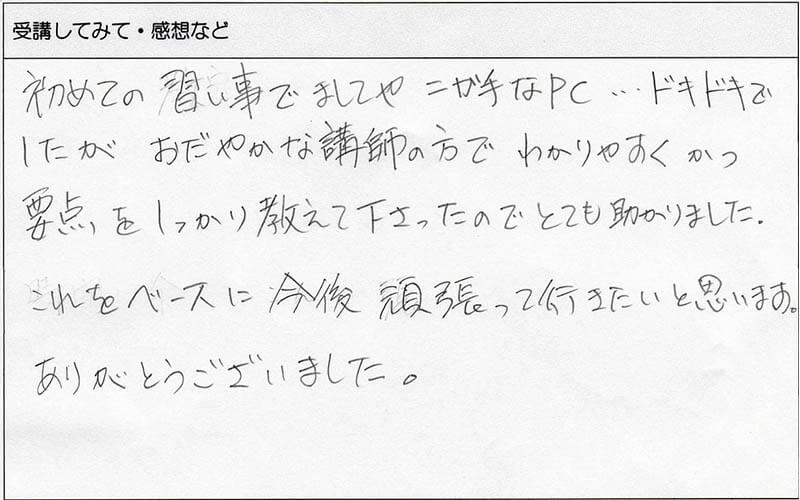 受講してみて・感想など
初めての習い事でましてやニガ手なPC…ドキドキで
したが おだやかな講師の方で わかりやすく かつ
要点をしっかり教えて下さったのでとても助かりました.
これをベースに 今後 頑張って行きたいと思います。
ありがとうございました。